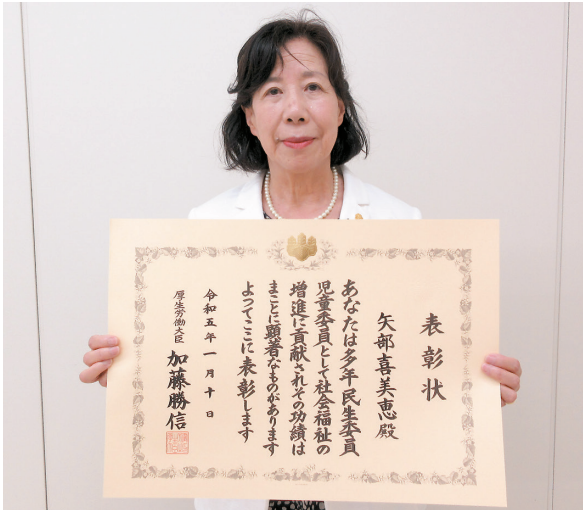 表彰状
矢部喜美恵殿
あなたは多年民生委員
児童委員として社会福祉の
増進に貢献されその功績は
まことに顕著なものがあります
よってここに表彰します
令和五年一月十日
厚生労働大臣 加藤勝信